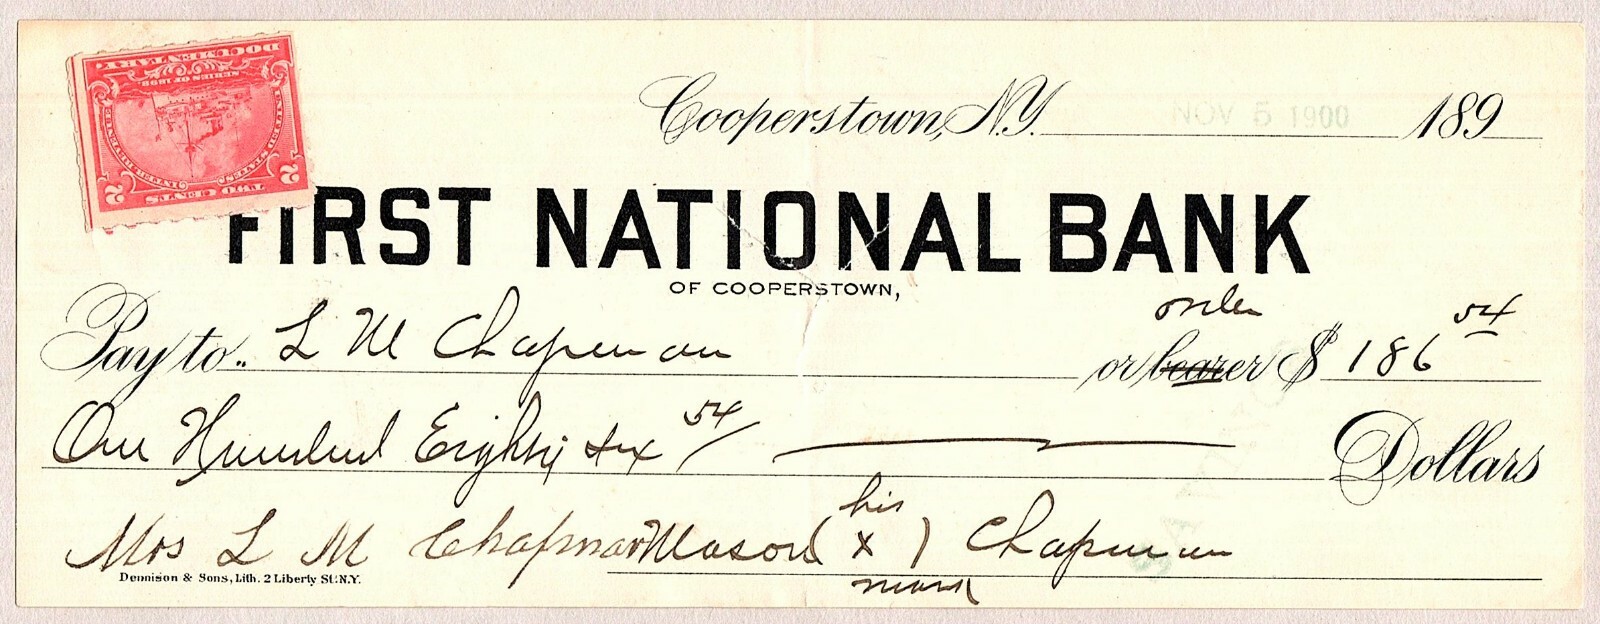 DOCUMENTARY
SERIES OF 1898
UNITED STATES INTERNAL REVENUE
2 TWO CENTS 2
Cooperstown, N.Y. NOV 5 1900 189
FIRST NATIONAL BANK
OF COOPERSTOWN,
order
Pay to.. L M Chapman or bearer $ 186 54
One Hundred Eighty six 54/ Dollars
his
Mrs L M Chapman Mason ( x ) Chapman
mark
Dennison & Sons, Lith. 2 Liberty St. N.Y.